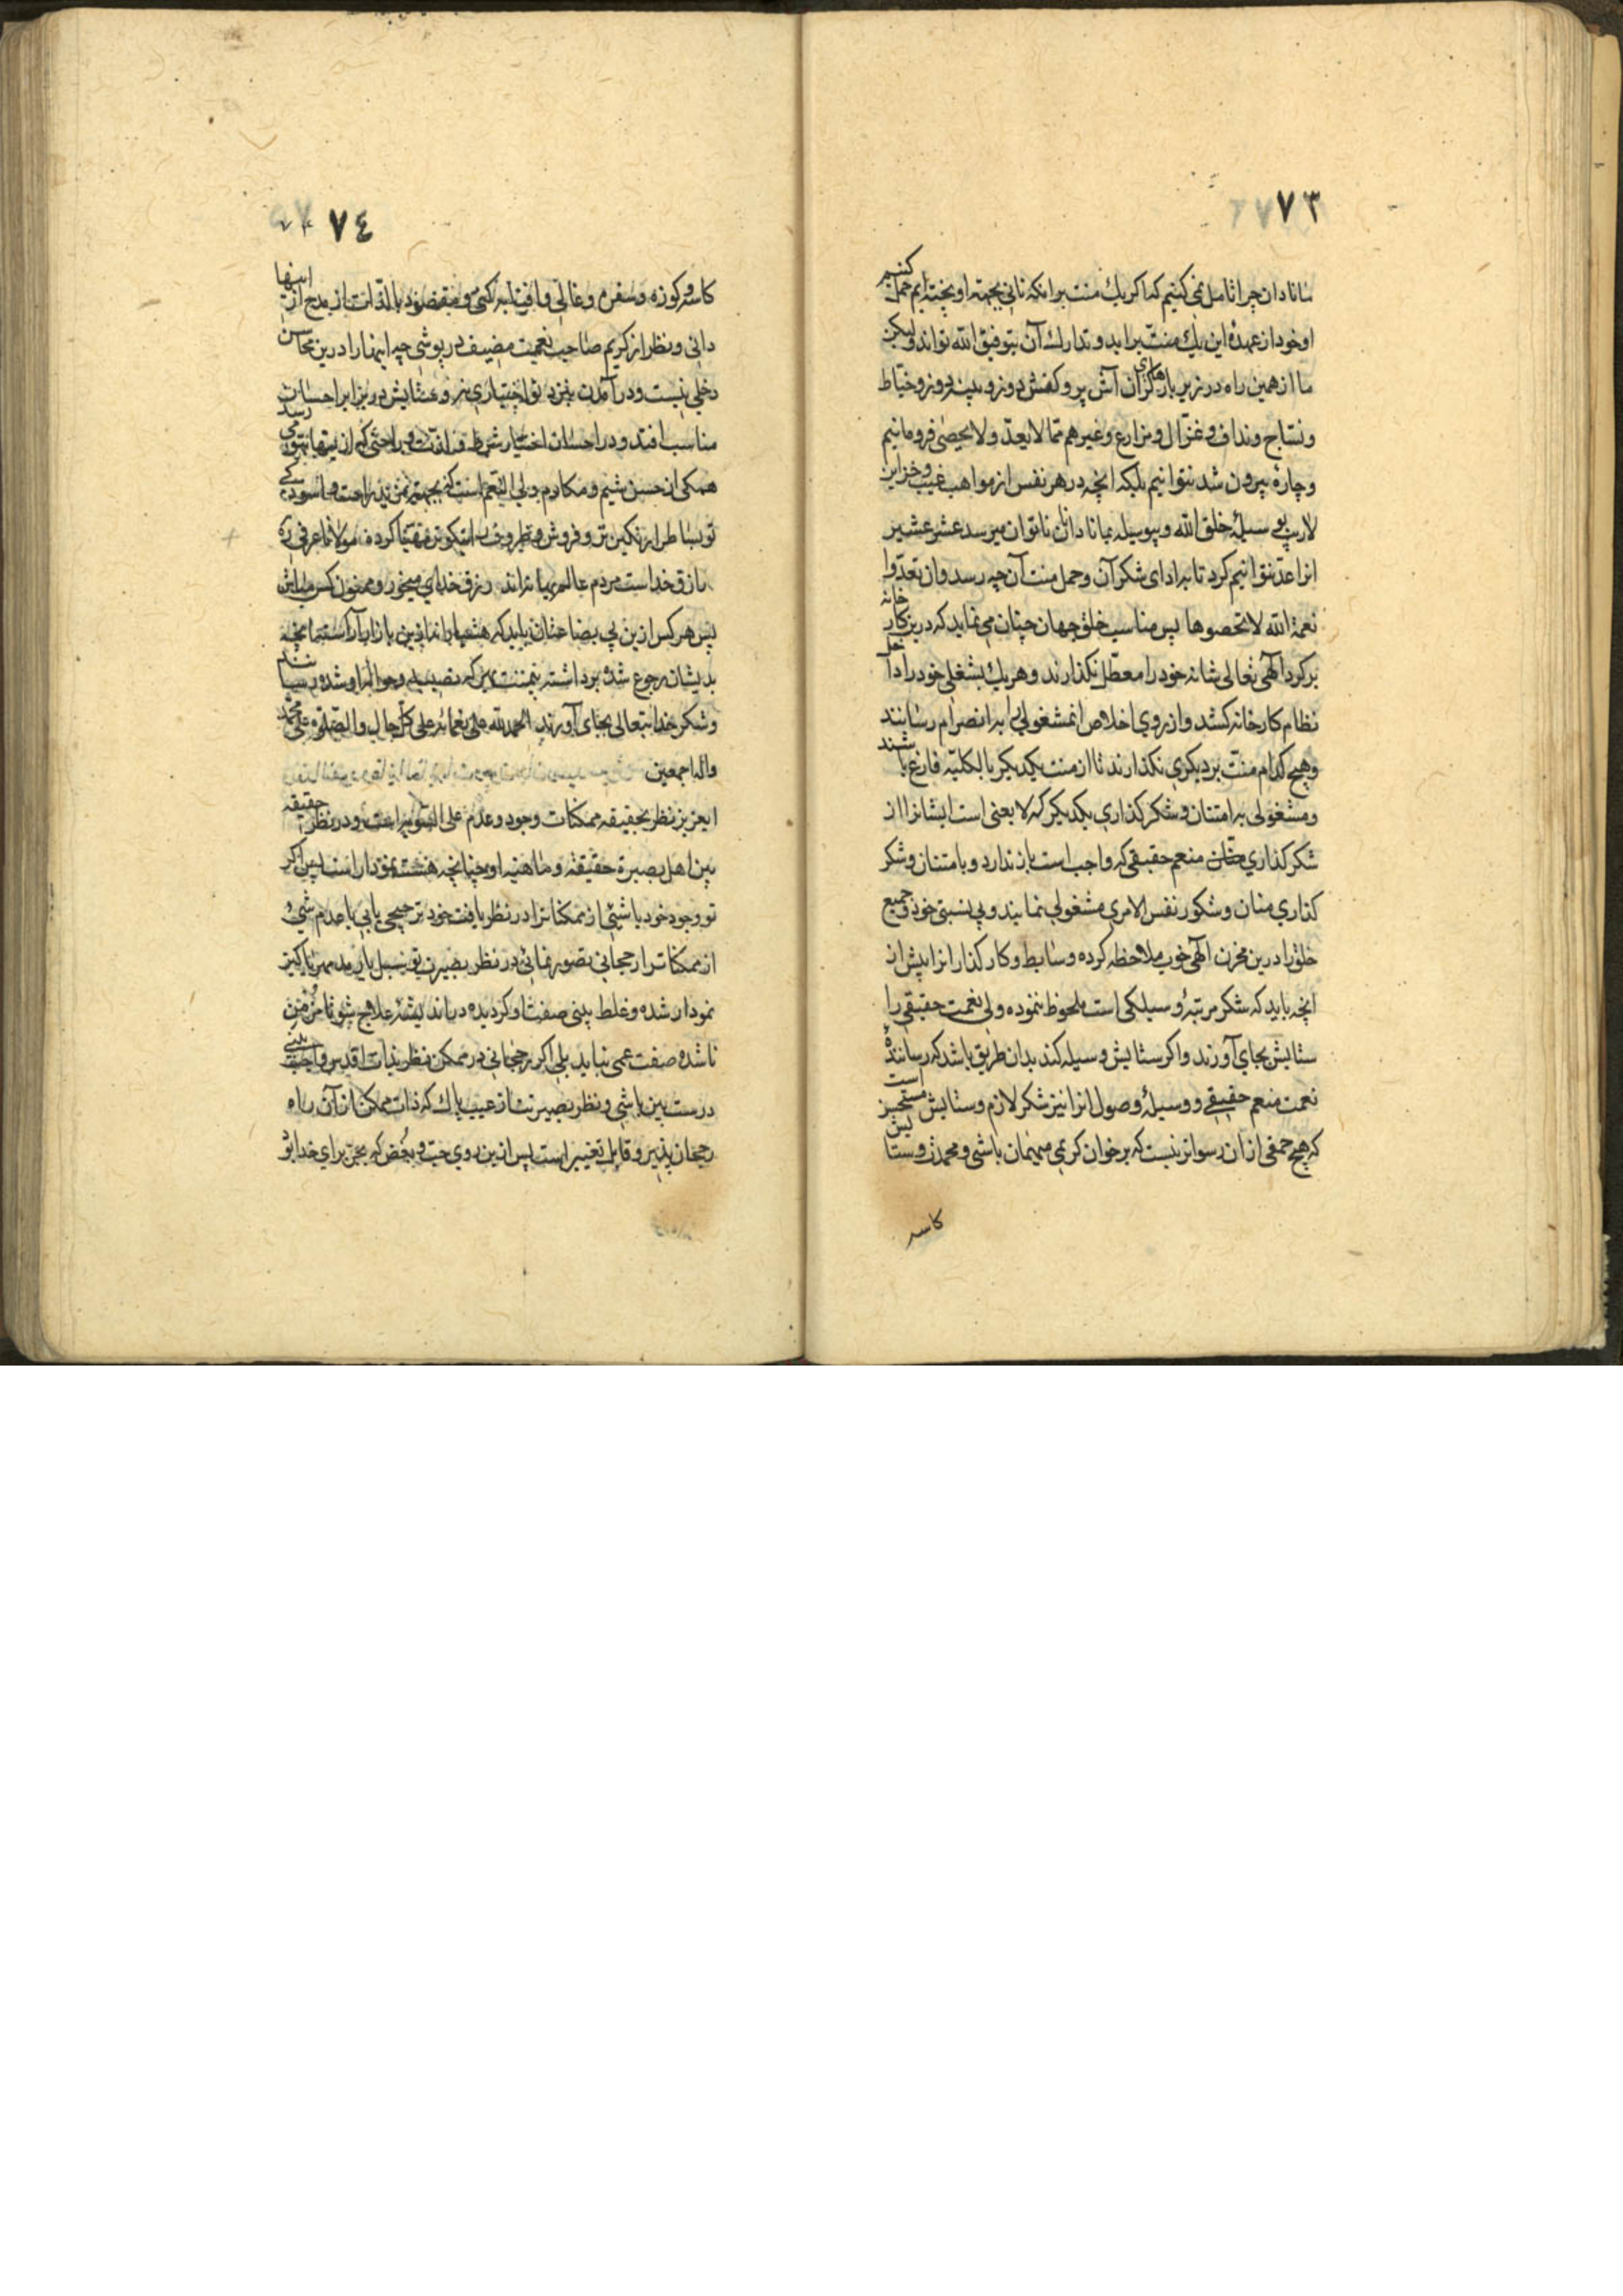 ٧٣
ما نادان چرا تامل نمی کنیم که اگر یک منت بر انکه نانی بجهة او پخته ایم حمل کنیم
او خود از عهدهٔ این یک منت براید و تدارک آن بتوفیق الله تواند ولیکن
ما از همین راه در زیر بارهای گران آش پز و کفش دوز و پینه دوز و خیاط
و نساج و نداف و غزال و مزارع و غیرهم مما لا یعد و لا یحصی فرو مانیم
و چارهٔ بیرون شد نتوانیم بلکه انچه در هر نفس از مواهب غیب و خزاین
لاریب بی وسیلهٔ خلق الله و بوسیله بما نادانان ناتوان میرسد عشر عشیر
انرا عد نتوانیم کرد تا به ادای شکر آن و حمل منت آن چه رسد وان تعدوا
نعمة الله لا تحصوها پس مناسب خلق جهان چنان می نماید که درین کارخانه
بر کرد الهی تعالی شانه خود را معطل نگذارند و هر یک بشغلی خود را داخل
نظام کارخانه کنند و از روی اخلاص آن مشغولی را به انصرام رسانند
و هیچ کدام منت بر دیگری نگذارند تا از منت یکدیگر بالکلیه فارغ باشند
و مشغولی به امتنان و شکرگذاری یکدیگر که لا یعنی است ایشانرا از
شکرگذاری منعم حقیقی که واجب است باز ندارد و بامتنان و شکر
گذاری منان و شکور نفس الامری مشغولی نمایند و بی نسبتی خود و جمیع
خلق را درین مخزن الهی خوب ملاحظه کرده وسایط و کارگذارانرا پیش از
انچه باید که شکر مرتبهٔ وسیلگی است ملحوظ ننموده ولی نعمت حقیقی را
ستایش بجای آورند و اگر ستایش وسیله کند بدان طریق باشد که رسانندهٔ
نعمت منعم حقیقی و وسیلهٔ وصول انرا نیز شکر لازم و ستایش مستحسن است
که هیچ حمقی ازان رسواتر نیست که بر خوان کریمی میهمان باشی و محمدت و ستایش
کاسه
٧٤
کاسه و کوزه و سفره و غالی و افتابه کنی و مقصود بالذات از مدح اینها
دانی و نظر از کریم صاحب نعمت مضیف در پوشی چه اینها را درین محاسن
دخلی نیست و در آمدن بنزد تو اختیاری نه و ستایش در برابر احسان
مناسب افتد و در احسان اختیار شرط و راحتی که از اینها بتو می رسد
همگی از حسن شیم و مکارم ولی النعم است که بجهة مزید راحت و اسودگی
تو بساط رنگین تر و فروش و ظروف نیکوتر مهیا کرده مولانا عرفی ره
رازق خداست مردم عالم بهانه اند رزق خدای میخور و ممنون کس مباش
پس هر کس ازین بی بضاعتان باید که هشیارانه ازین بازار آراسته انچه
بدیشان رجوع شده برداشته بیمنت به آن که نصیب و حوالهٔ او شده برسانند
و شکر خدایتعالی بجای آورند الحمد لله علی نعمائه علی کل حال والصلوة علی محمد
واله اجمعین
ایعزیز نظر بحقیقه ممکنات وجود و عدم علی السویه است و در نظر حقیقه
بین اهل بصیرة حقیقة و ماهیته او چنانچه هست نمودار است پس اگر
تو وجود خود یا شیئی از ممکنات را در نظر یافت خود ترجیحی یابی یا عدم شیء
از ممکنات را رجحانی تصور نمائی در نظر بصیرت تو
نمودار شده و غلط بینی صفت او گردیده در اندیشهٔ علاج شو تا مزمن
ناشده صفت عمی نیاید بلی اگر رجحانی در ممکن نظر بذات اقدس واجب بینی
درست بین باشی و نظر بصیرتت از عیب پاک که ذات ممکن از آن راه
رجحان پذیر و قابل تغییر است پس ازین روی حب و بغض که بمجرد برای خدا بود